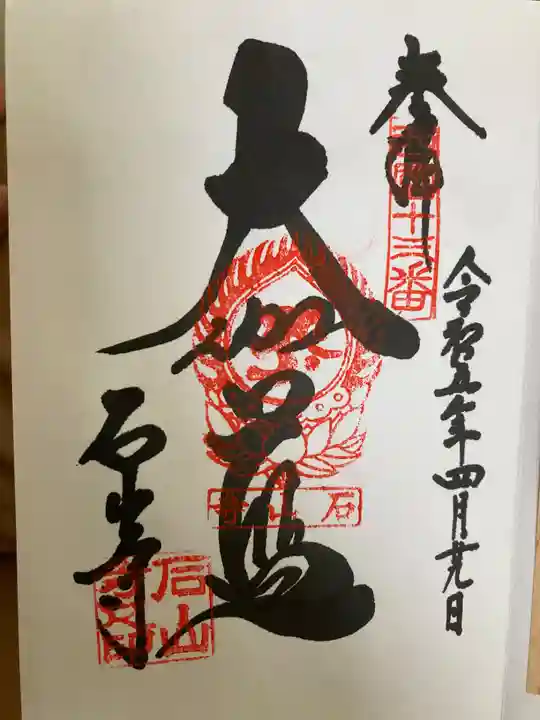 奉拝
西国十三番
令和五年四月廿九日
大伽藍
石山寺
石山寺
石山寺印